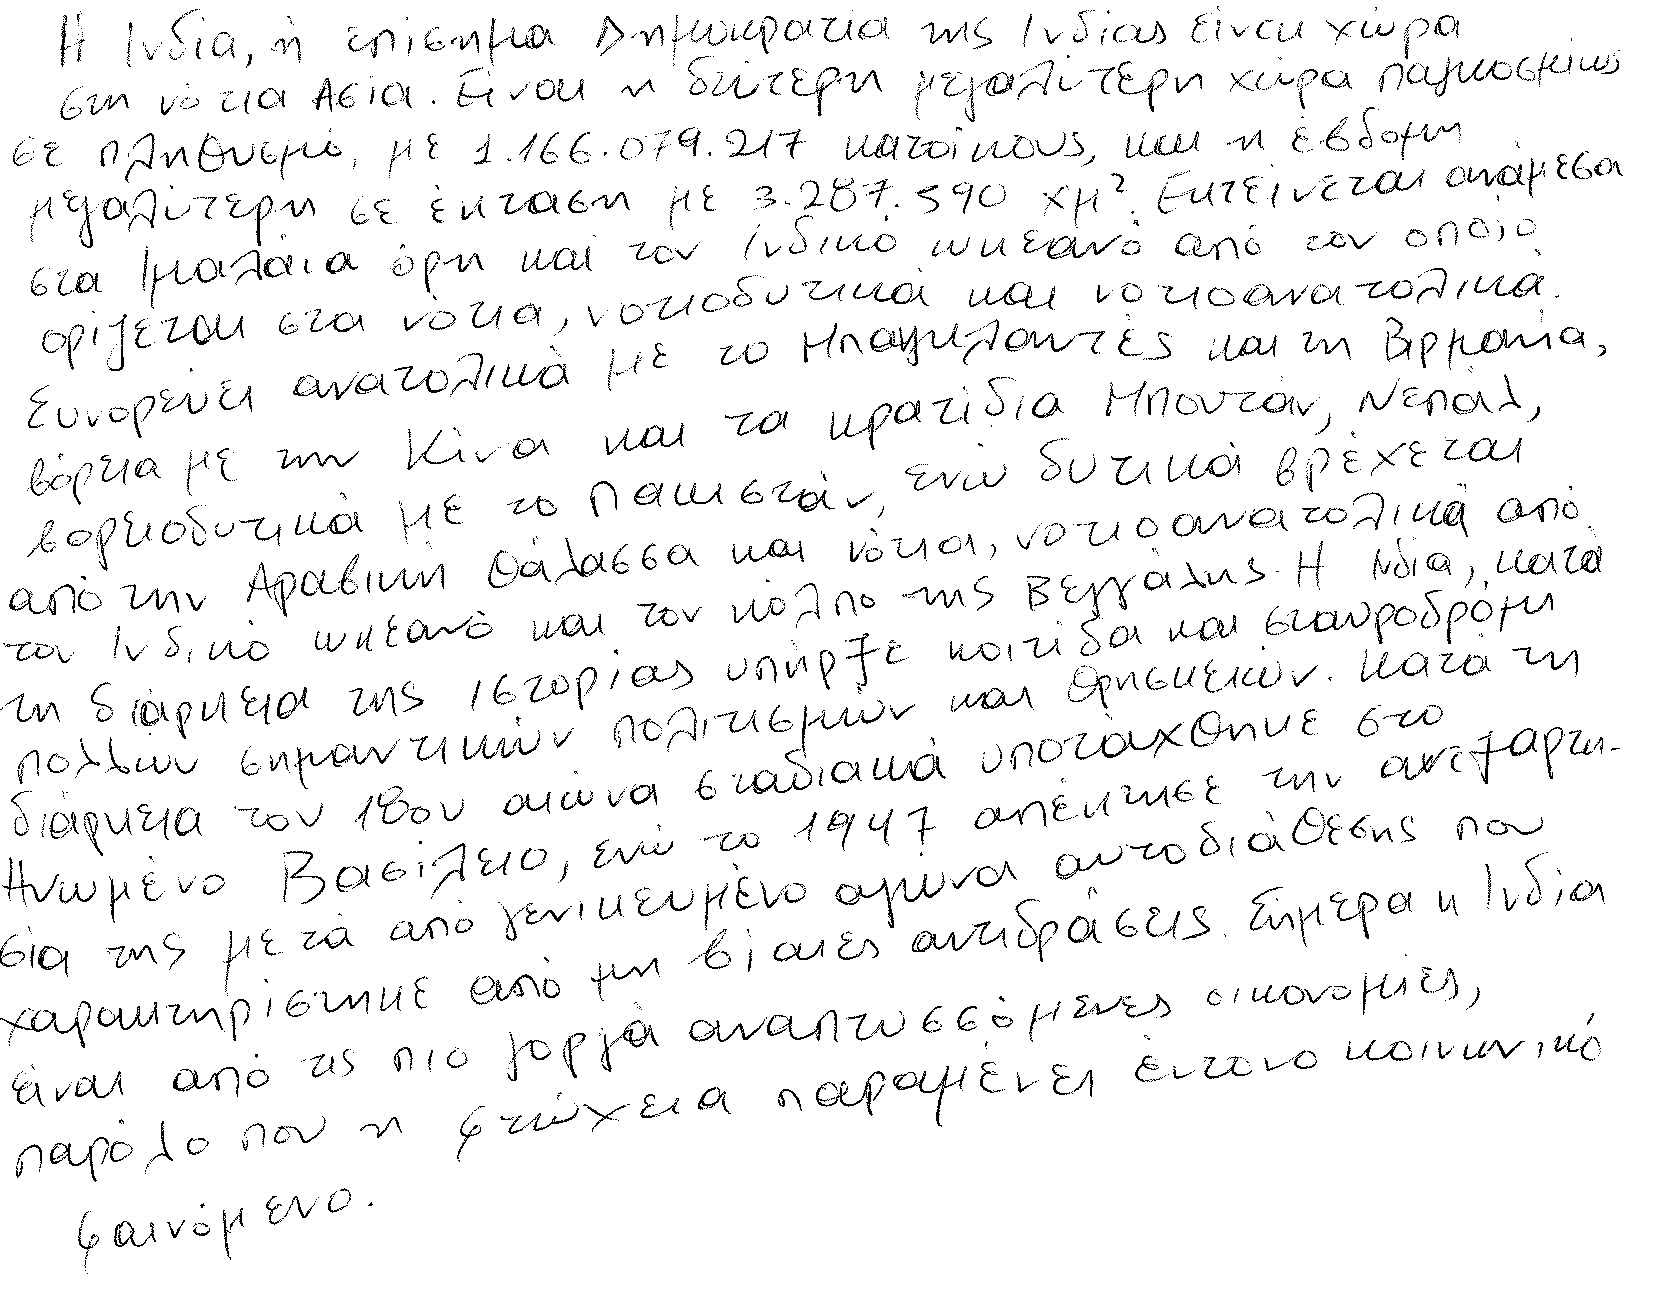 Η Ινδία, ή επίσημα Δημοκρατία της Ινδίας είναι χώρα
στη νότια Ασία. Είναι η δεύτερη μεγαλύτερη χώρα παγκοσμίως
σε πληθυσμό, με 1.166.079.217 κατοίκους, και η έβδομη
μεγαλύτερη σε έκταση με 3.287.590 χμ². Εκτείνεται ανάμεσα
στα Ιμαλάια όρη και τον Ινδικό ωκεανό από τον οποίο
ορίζεται στα νότια, νοτιοδυτικά και νοτιοανατολικά.
Συνορεύει ανατολικά με το Μπαγκλαντές και τη Βιρμανία,
βόρεια με την Κίνα και τα κρατίδια Μπουτάν, Νεπάλ,
βορειοδυτικά με το Πακιστάν, ενώ δυτικά βρέχεται
από την Αραβική θάλασσα και νότια, νοτιοανατολικά από
τον Ινδικό ωκεανό και τον κόλπο της Βεγγάλης. Η Ινδία, κατά
τη διάρκεια της ιστορίας υπήρξε κοιτίδα και σταυροδρόμι
πολλών σημαντικών πολιτισμών και θρησκειών. Κατά τη
διάρκεια του 18ου αιώνα σταδιακά υποτάχθηκε στο
Ηνωμένο Βασίλειο, ενώ το 1947 απέκτησε την ανεξαρτη-
σία της μετά από γενικευμένο αγώνα αυτοδιάθεσης που
χαρακτηρίστηκε από μη βίαιες αντιδράσεις. Σήμερα η Ινδία
είναι από τις πιο γοργά αναπτυσσόμενες οικονομίες,
παρόλο που η φτώχεια παραμένει έντονο κοινωνικό
φαινόμενο.